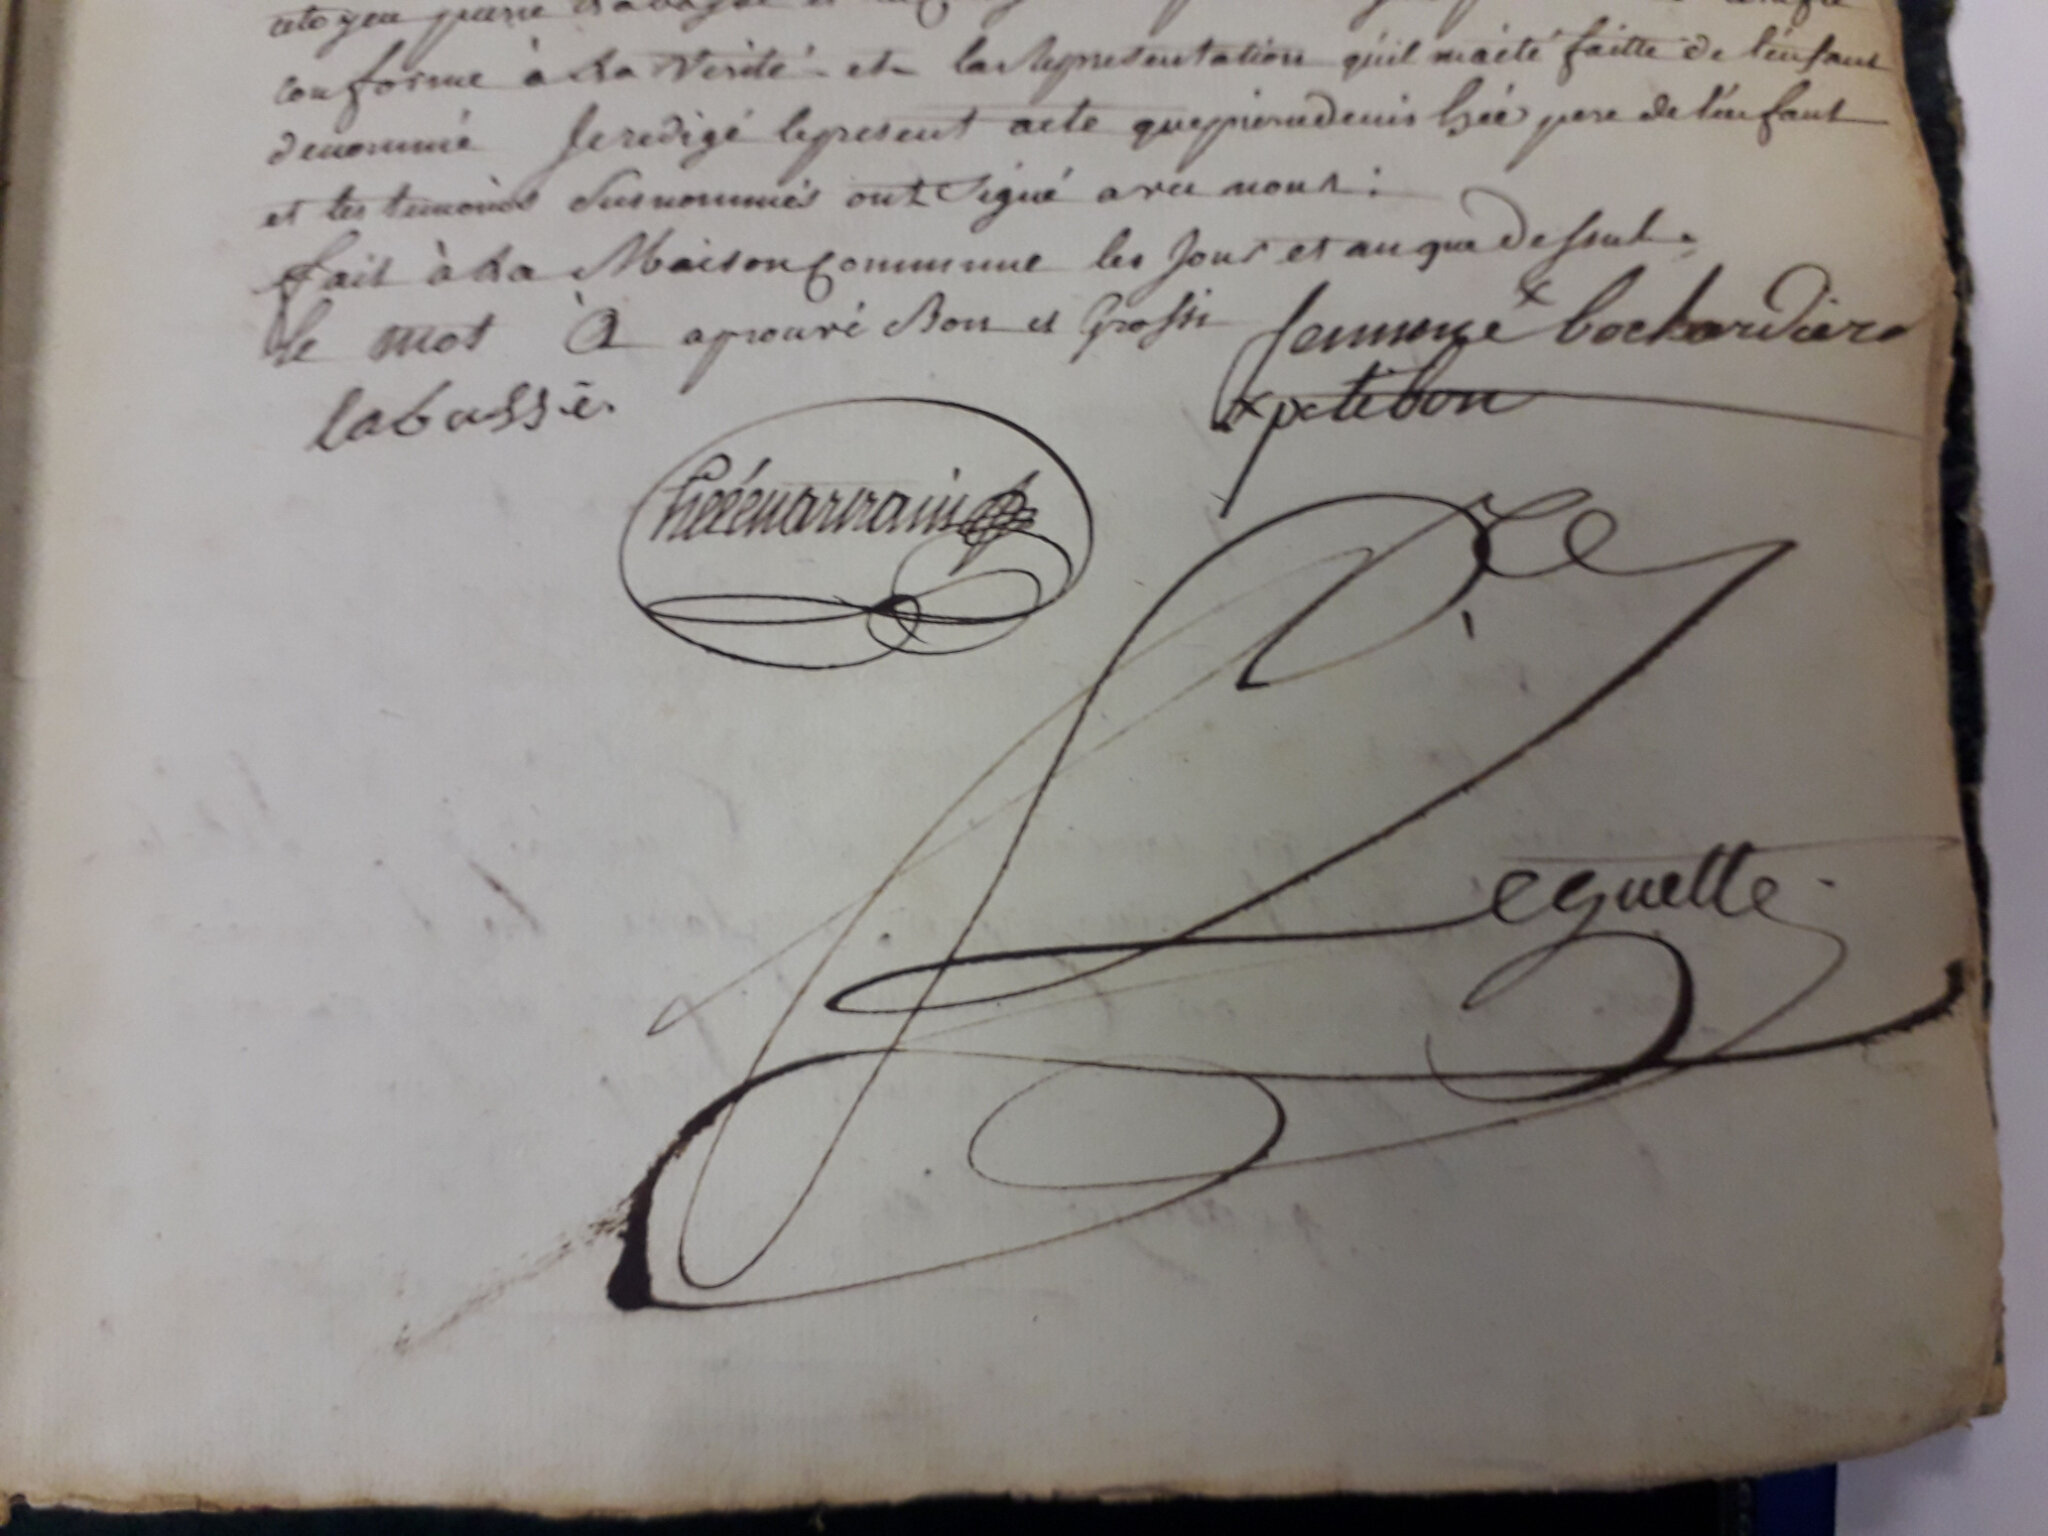 citoyen pierre
conforme à La Verité et La Representation qu'il m'a été faitte de l'enfant
denommé Je redigé le present acte que pierre denis hée pere de l'enfant
et les temoins Susnommés ont Signé avec nous :
fait à La Maison Commune les Jour et an que dessus .
le mot a aprouvé Bon et Grossi femme bochardiere
labassé. petibon
hée
Leguelle